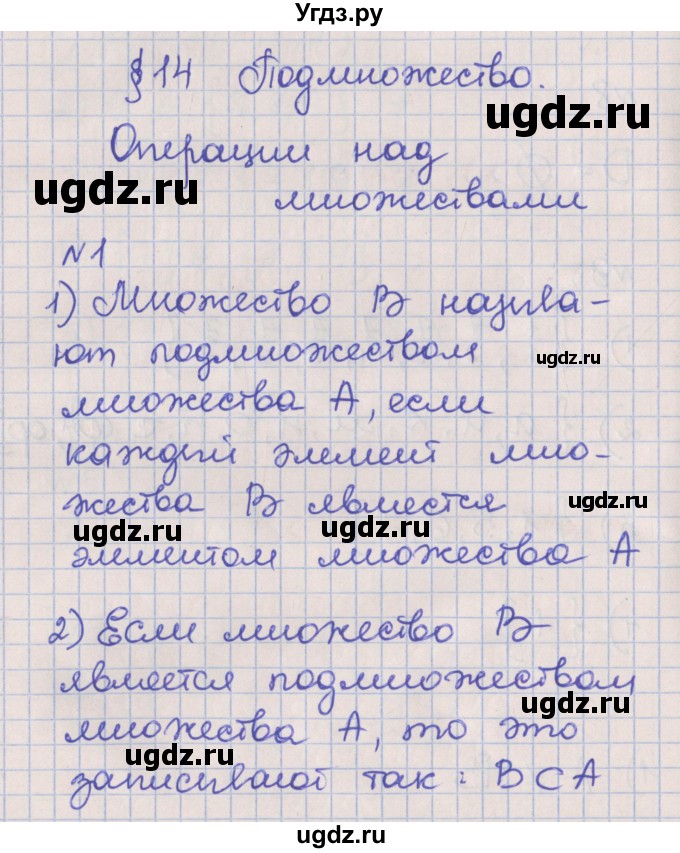 Угдз.ру
§ 14 Подмножество.
ugdz.ru
Операции над
ugdz.ru
множествами
№1
1) Множество B называ-
ют подмножеством
ugdz.ru
множества A, если
каждый элемент мно-
жества B является
ugdz.ru
ugdz.ru
ugdz.ru
элементом множества A
2) Если множество B
ugdz.ru
является подмножеством
множества A, то это
ugdz.ru
записывают так: B⊂A
ugdz.ru
ugdz.ru